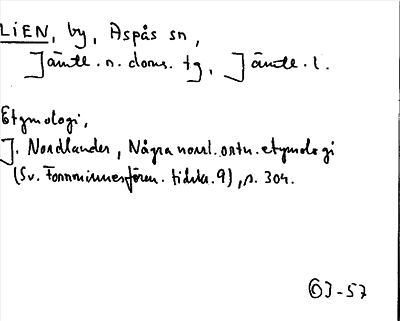 LIEN, by, Aspås sn,
Jämtl. n. doms. tg, Jämtl. l.
Etymologi,
J. Nordlander, Några norrl. ortn. etymologi
(Sv. Fornminnesfören. tidskr. 9), s. 304.
63-57